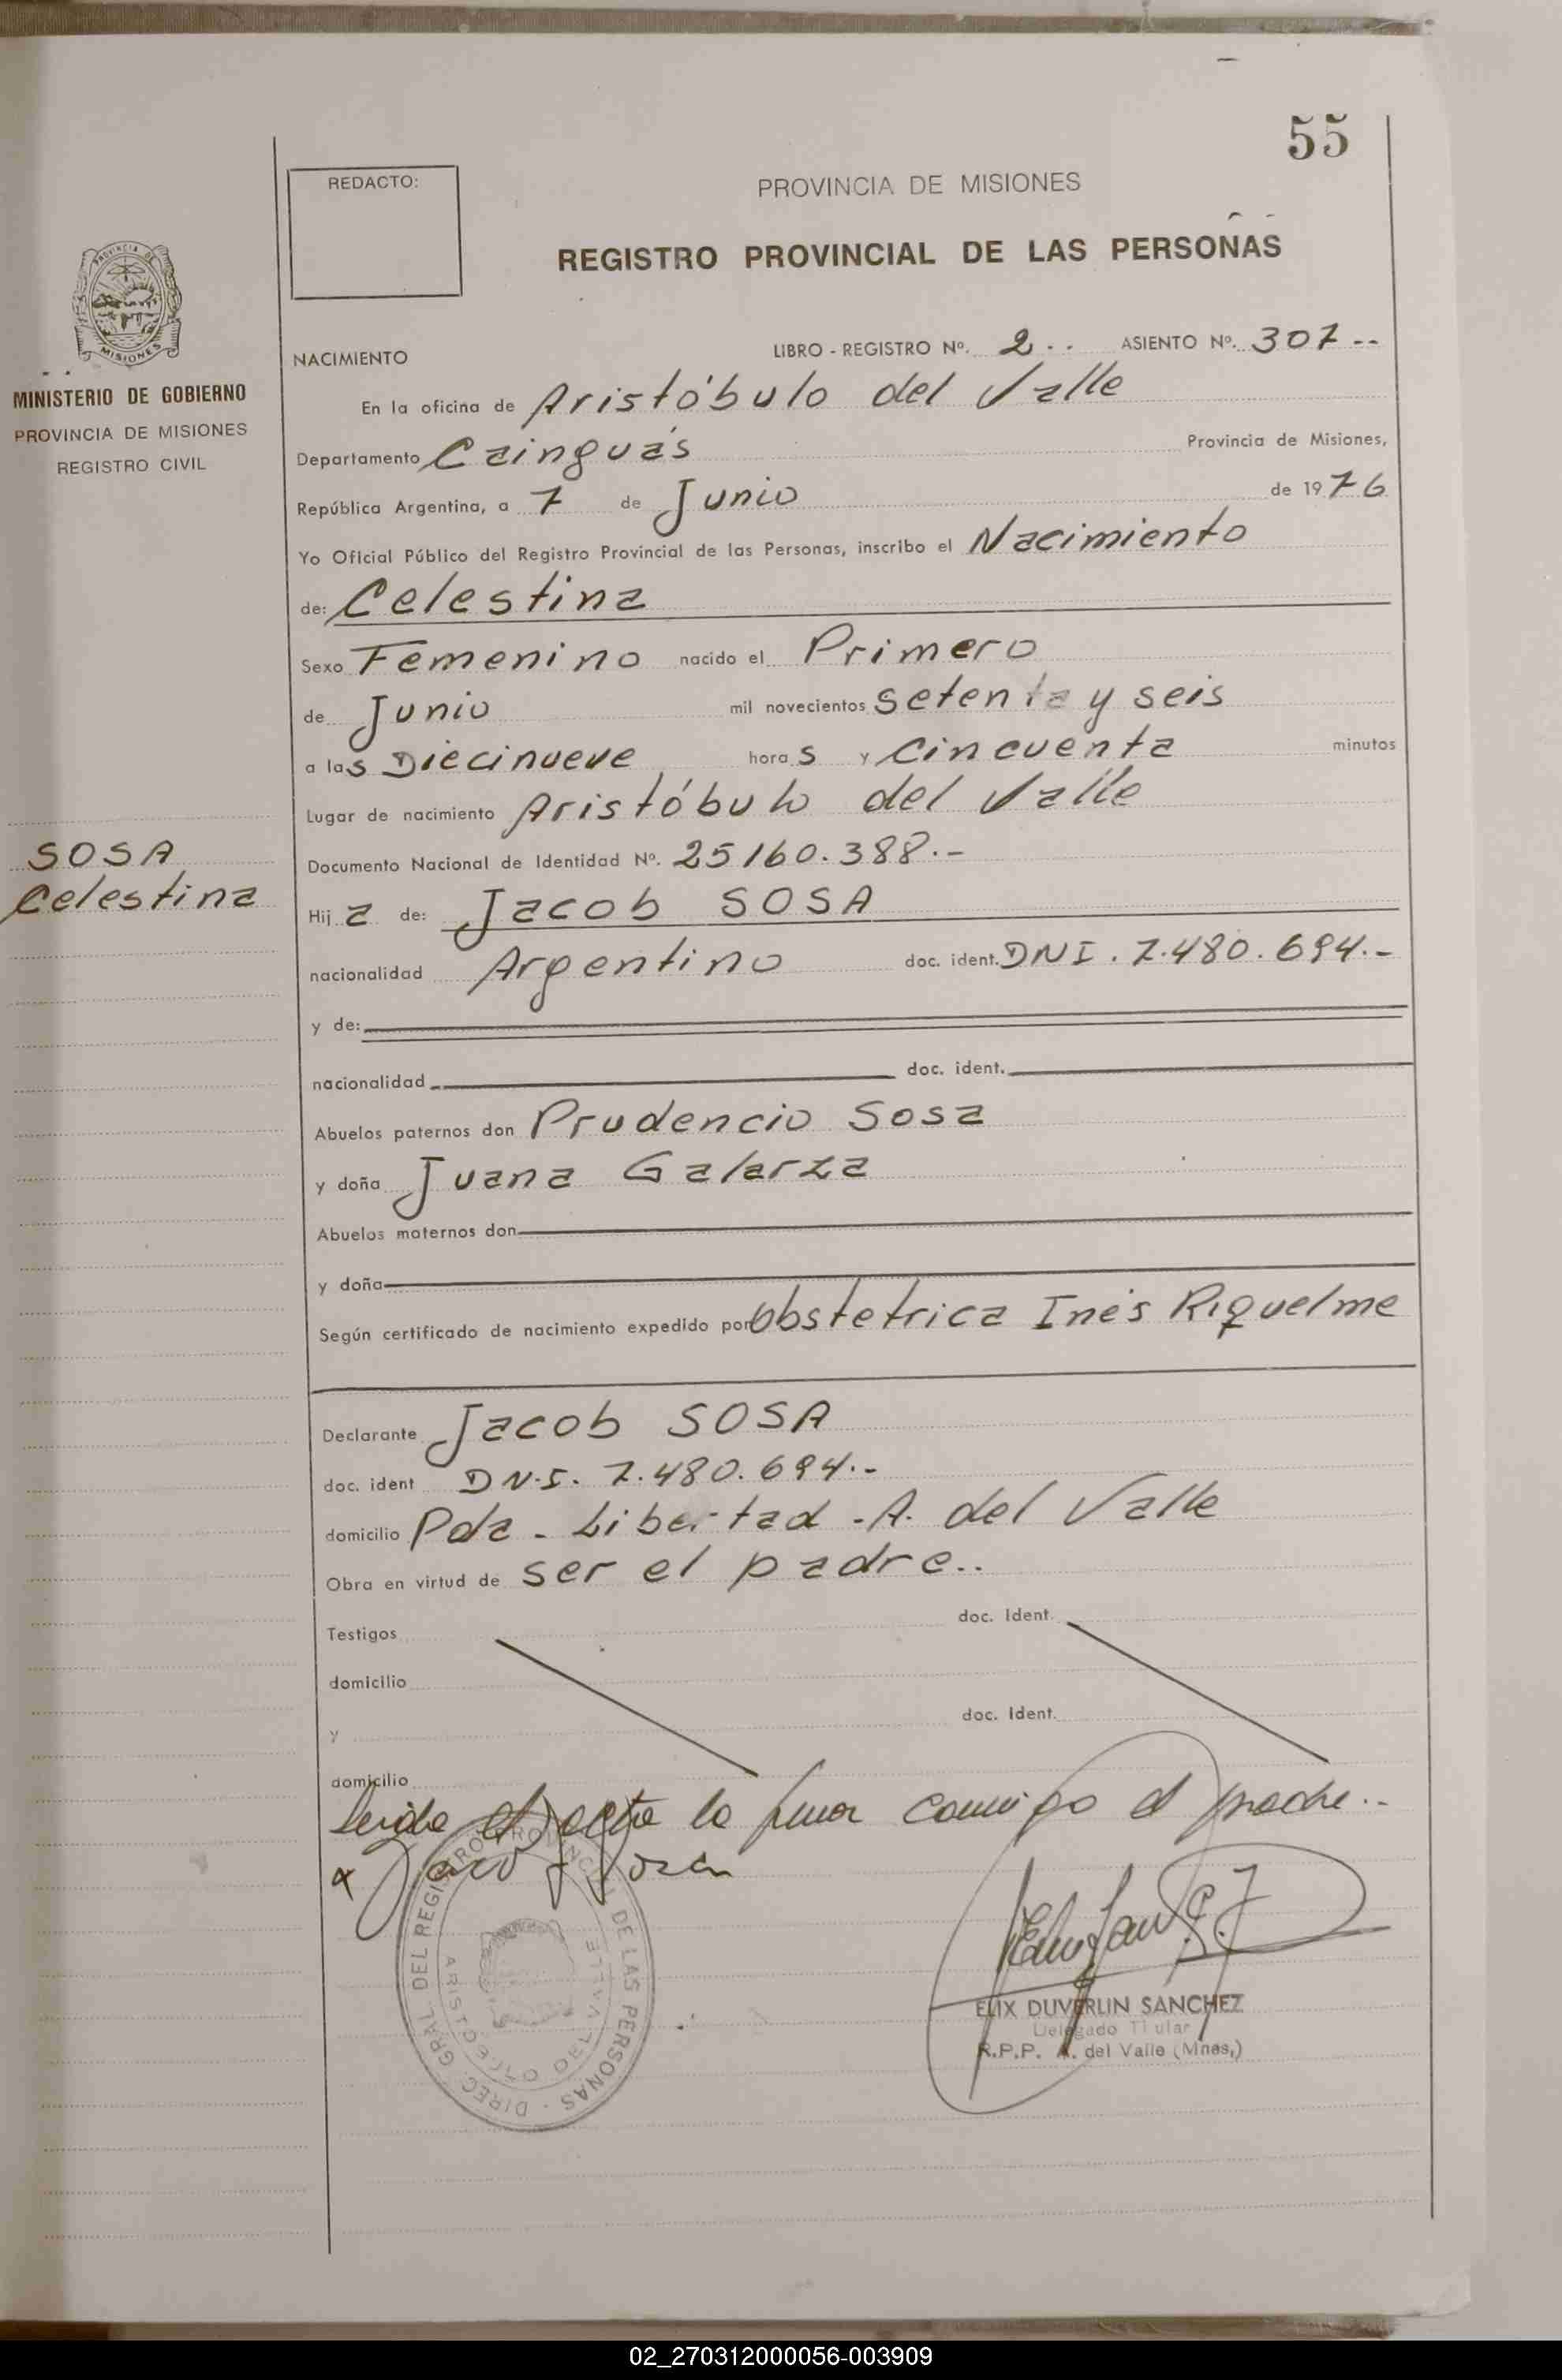 55
REDACTO:
PROVINCIA DE MISIONES
REGISTRO PROVINCIAL DE LAS PERSONAS
PROVINCIA DE
MISIONES
MINISTERIO DE GOBIERNO
PROVINCIA DE MISIONES
REGISTRO CIVIL
NACIMIENTO LIBRO - REGISTRO Nº. 2.. ASIENTO Nº. 307--
En la oficina de Aristóbulo del Valle
Departamento Cainguás Provincia de Misiones,
República Argentina, a 7 de Junio de 1976
Yo Oficial Público del Registro Provincial de las Personas, inscribo el Nacimiento
de: Celestina
Sexo Femenino nacido el Primero
de Junio mil novecientos setenta y seis
a las Diecinueve horas y Cincuenta minutos
Lugar de nacimiento Aristóbulo del Valle
SOSA
Celestina
Documento Nacional de Identidad Nº. 25160.388.-
Hija de: Jacob SOSA
nacionalidad Argentino doc. ident. DNI. 7.480.694.-
y de:
nacionalidad doc. ident.
Abuelos paternos don Prudencio Sosa
y doña Juana Galarza
Abuelos maternos don
y doña
Según certificado de nacimiento expedido por Obstetrica Inés Riquelme
Declarante Jacob SOSA
doc. ident D N.I. 7.480.694.-
domicilio Pda - Libertad - A. del Valle
Obra en virtud de ser el padre..
Testigos doc. Ident.
domicilio
y doc. Ident.
domicilio
leida el acta la firma conmigo el padre..
DIREC. GRAL. DEL REGISTRO PROVINCIAL DE LAS PERSONAS
ARISTOBULO DEL VALLE
ELIX DUVERLIN SANCHEZ
Delegado Titular
R.P.P. A. del Valle (Mnes,)
02_270312000056-003909